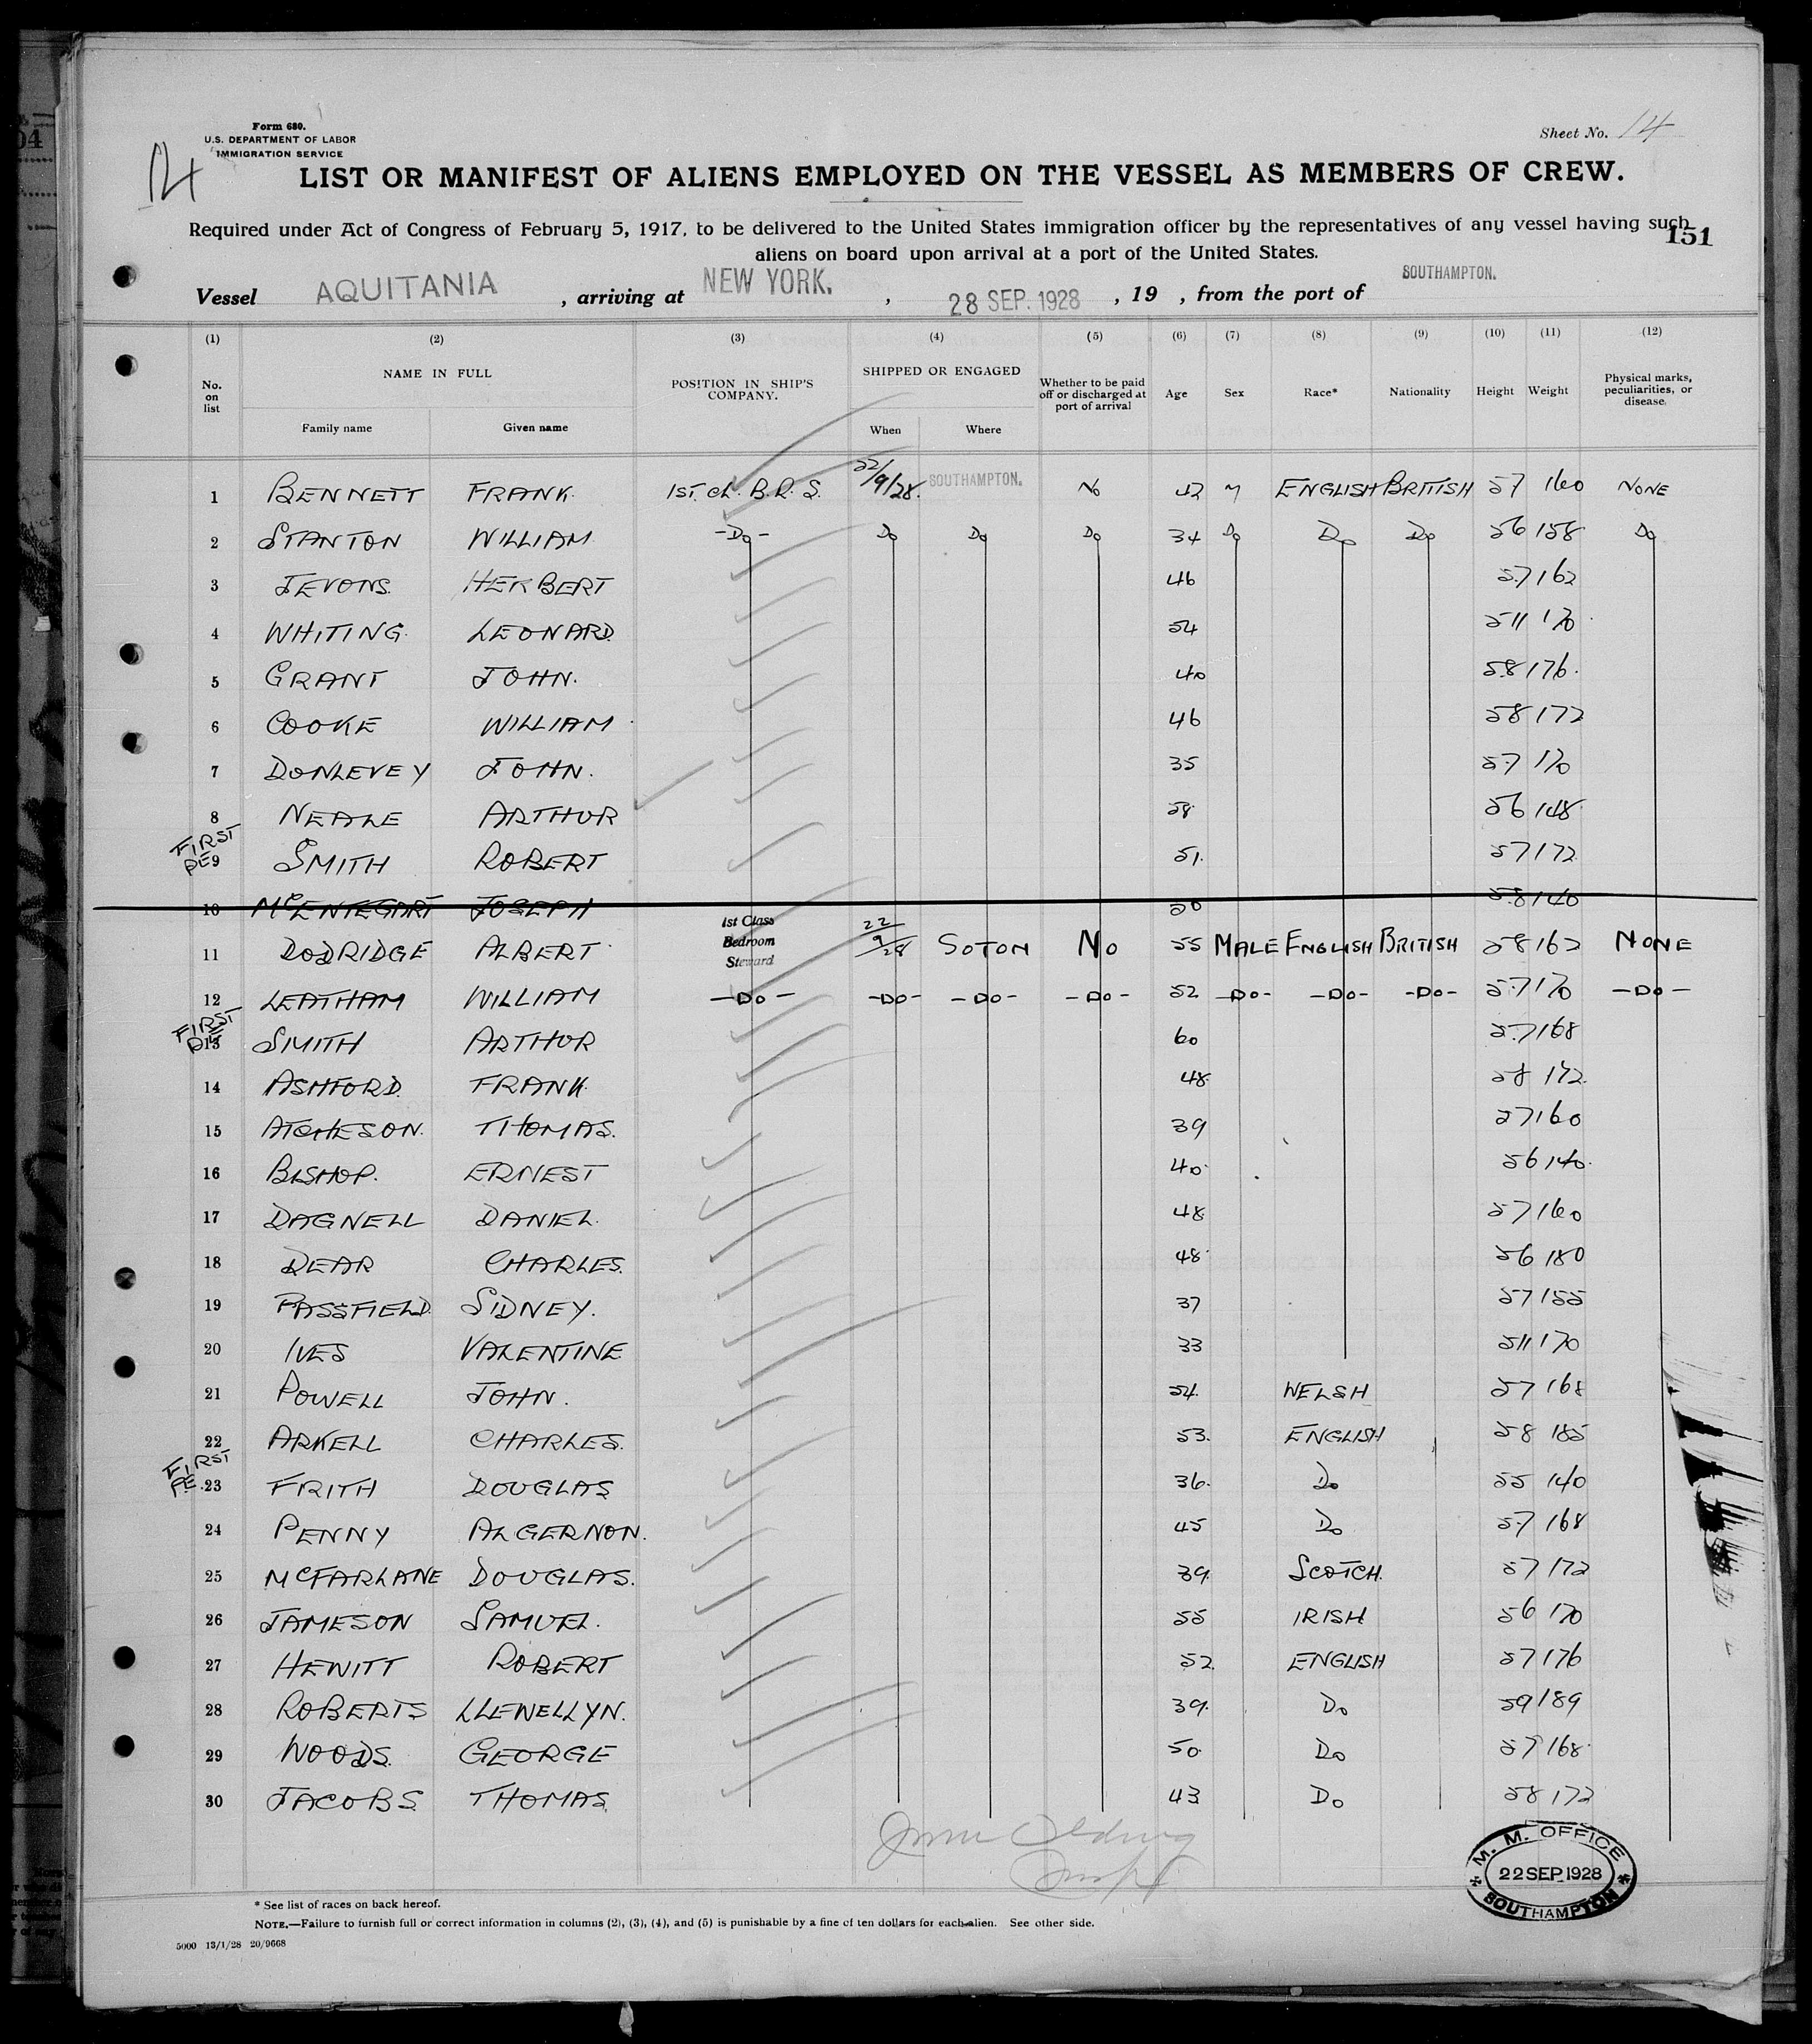 Form 680.
U.S. DEPARTMENT OF LABOR
IMMIGRATION SERVICE
Sheet No. 14
14
LIST OR MANIFEST OF ALIENS EMPLOYED ON THE VESSEL AS MEMBERS OF CREW.
Required under Act of Congress of February 5, 1917, to be delivered to the United States immigration officer by the representatives of any vessel having such
151
aliens on board upon arrival at a port of the United States.
Vessel AQUITANIA , arriving at NEW YORK. , 28 SEP. 1928 , 19 , from the port of SOUTHAMPTON.
(1) (2) (3) (4) (5) (6) (7) (8) (9) (10) (11) (12)
No. on list NAME IN FULL POSITION IN SHIP'S COMPANY. SHIPPED OR ENGAGED Whether to be paid off or discharged at port of arrival Age Sex Race* Nationality Height Weight Physical marks, peculiarities, or disease.
Family name Given name When Where
1 BENNETT FRANK 1ST. CL. B.R.S. 22/9/28. SOUTHAMPTON. No 42 M ENGLISH BRITISH 57 160 NONE
2 STANTON WILLIAM -Do- Do Do Do 34 Do Do Do 56 158 Do
3 JEVONS. HERBERT 46 5.7 162
4 WHITING. LEONARD. 54 511 170
5 GRANT JOHN. 40 5.8 176.
6 COOKE WILLIAM 46 58 172
7 DONLEVEY JOHN. 35 5.7 170
8 NEALE ARTHUR 58 56 148
FIRST
9 SMITH ROBERT 51. 57 172
10 McENTEGART JOSEPH 50 5.8 140
11 DODRIDGE ALBERT 1st Class Bedroom Steward 22/9/28 SOTON No 55 MALE ENGLISH BRITISH 58 162 NONE
12 LEATHAM WILLIAM -Do- -Do- -Do- -Do- 52 -Do- -Do- -Do- 5.7 170 -Do-
FIRST
13 SMITH ARTHUR 60 5.7 168
14 ASHFORD. FRANK 48 58 172.
15 ATCHESON. THOMAS. 39 57 160
16 BISHOP. ERNEST 40 56 140.
17 DAGNELL DANIEL. 48 57 160
18 DEAR CHARLES. 48 56 180
19 PASSFIELD. SIDNEY. 37 57 155
20 IVES VALENTINE 33 511 170
21 POWELL JOHN. 54. WELSH 57 168
22 ARKELL CHARLES. 53. ENGLISH 58 185
FIRST
PE. 23 FRITH DOUGLAS 36. Do 55 140
24 PENNY ALGERNON. 45 Do 5.7 168
25 McFARLANE DOUGLAS. 39. SCOTCH. 57 172
26 JAMESON SAMUEL. 55 IRISH 56 170
27 HEWITT ROBERT 52 ENGLISH 57 176
28 ROBERTS LLEWELLYN. 39. Do 59 189
29 WOODS. GEORGE 50. Do 57 168
30 JACOBS THOMAS. 43 Do 58 172
M. M. OFFICE
22 SEP. 1928
SOUTHAMPTON
* See list of races on back hereof.
NOTE.—Failure to furnish full or correct information in columns (2), (3), (4), and (5) is punishable by a fine of ten dollars for each alien. See other side.
5000 13/1/28 20/9668